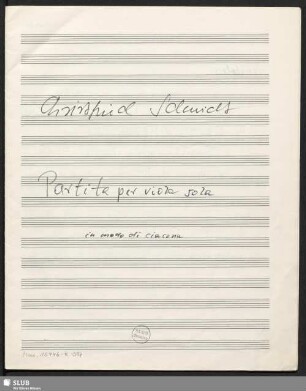 Christfried Schmidt
Partita per viola sola
in modo di ciacona
SLUB
Wir führen Wissen.